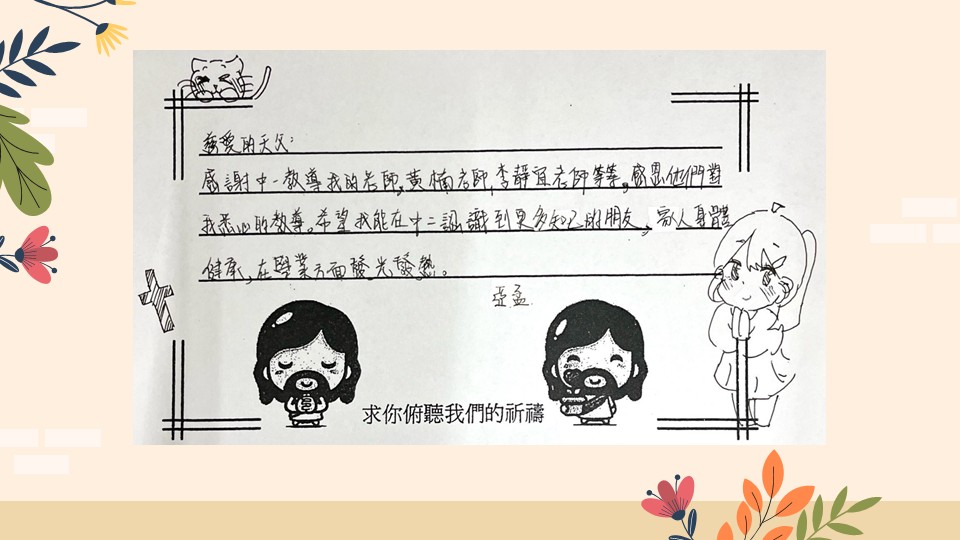 慈愛的天父：
感謝中一教導我的老師，黃楠老師，李靜宜老師等等。感恩他們對
我悉心的教導。希望我能在中二認識到更多知己朋友，家人身體
健康，在學業方面發光發熱。
亞孟
求你俯聽我們的祈禱